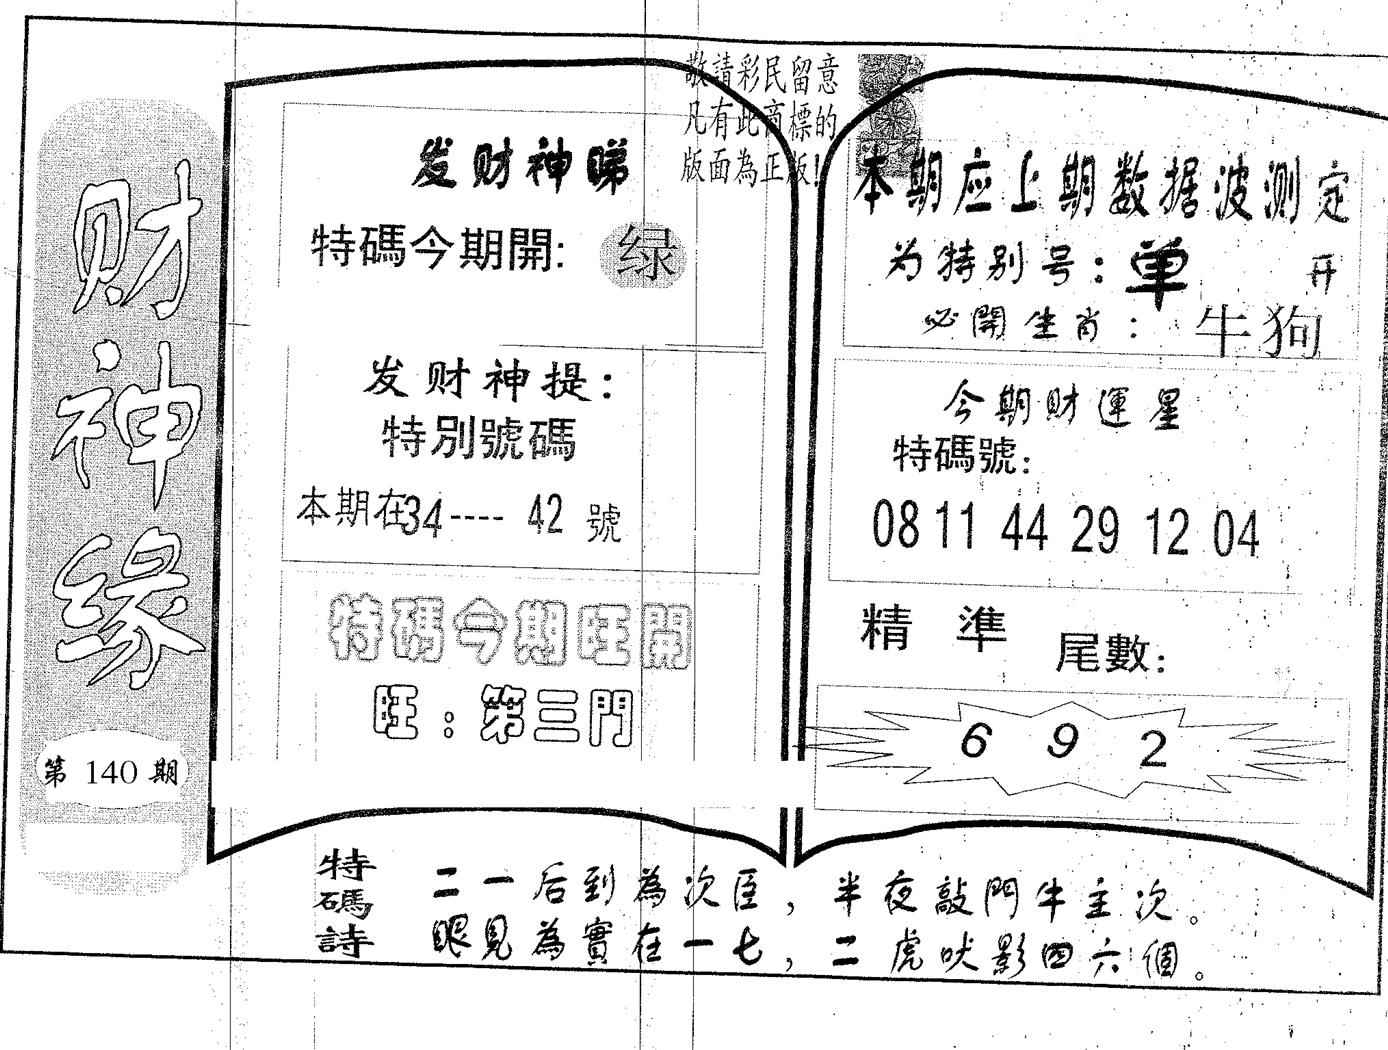 财神缘
第 140 期
敬請彩民留意
凡有此商標的
版面為正版!
发财神睇
特碼今期開: 绿
发财神提:
特别號碼
本期在34---- 42 號
特碼今期旺開
旺:第三門
本期应上期数据波测定
为特别号:单 开
必開生肖: 牛狗
今期財運星
特碼號:
08 11 44 29 12 04
精 準 尾數:
6 9 2
特碼詩
二一后到為次臣,半夜敲門牛主次。
眼見為實在一七,二虎吠影四六個。